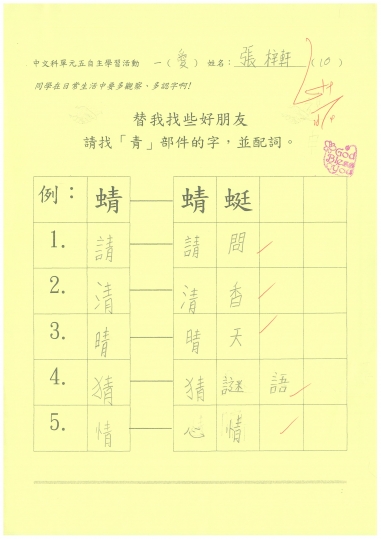 中文科單元五自主學習活動 一(愛) 姓名: 張梓軒 (10)
同學在日常生活中要多觀察、多認字啊!
替我找些好朋友
請找「青」部件的字,並配詞。
God
Bless
You
例: 蜻 — 蜻蜓
1. 請 — 請問
2. 清 — 清香
3. 晴 — 晴天
4. 猜 — 猜謎語
5. 情 — 心情